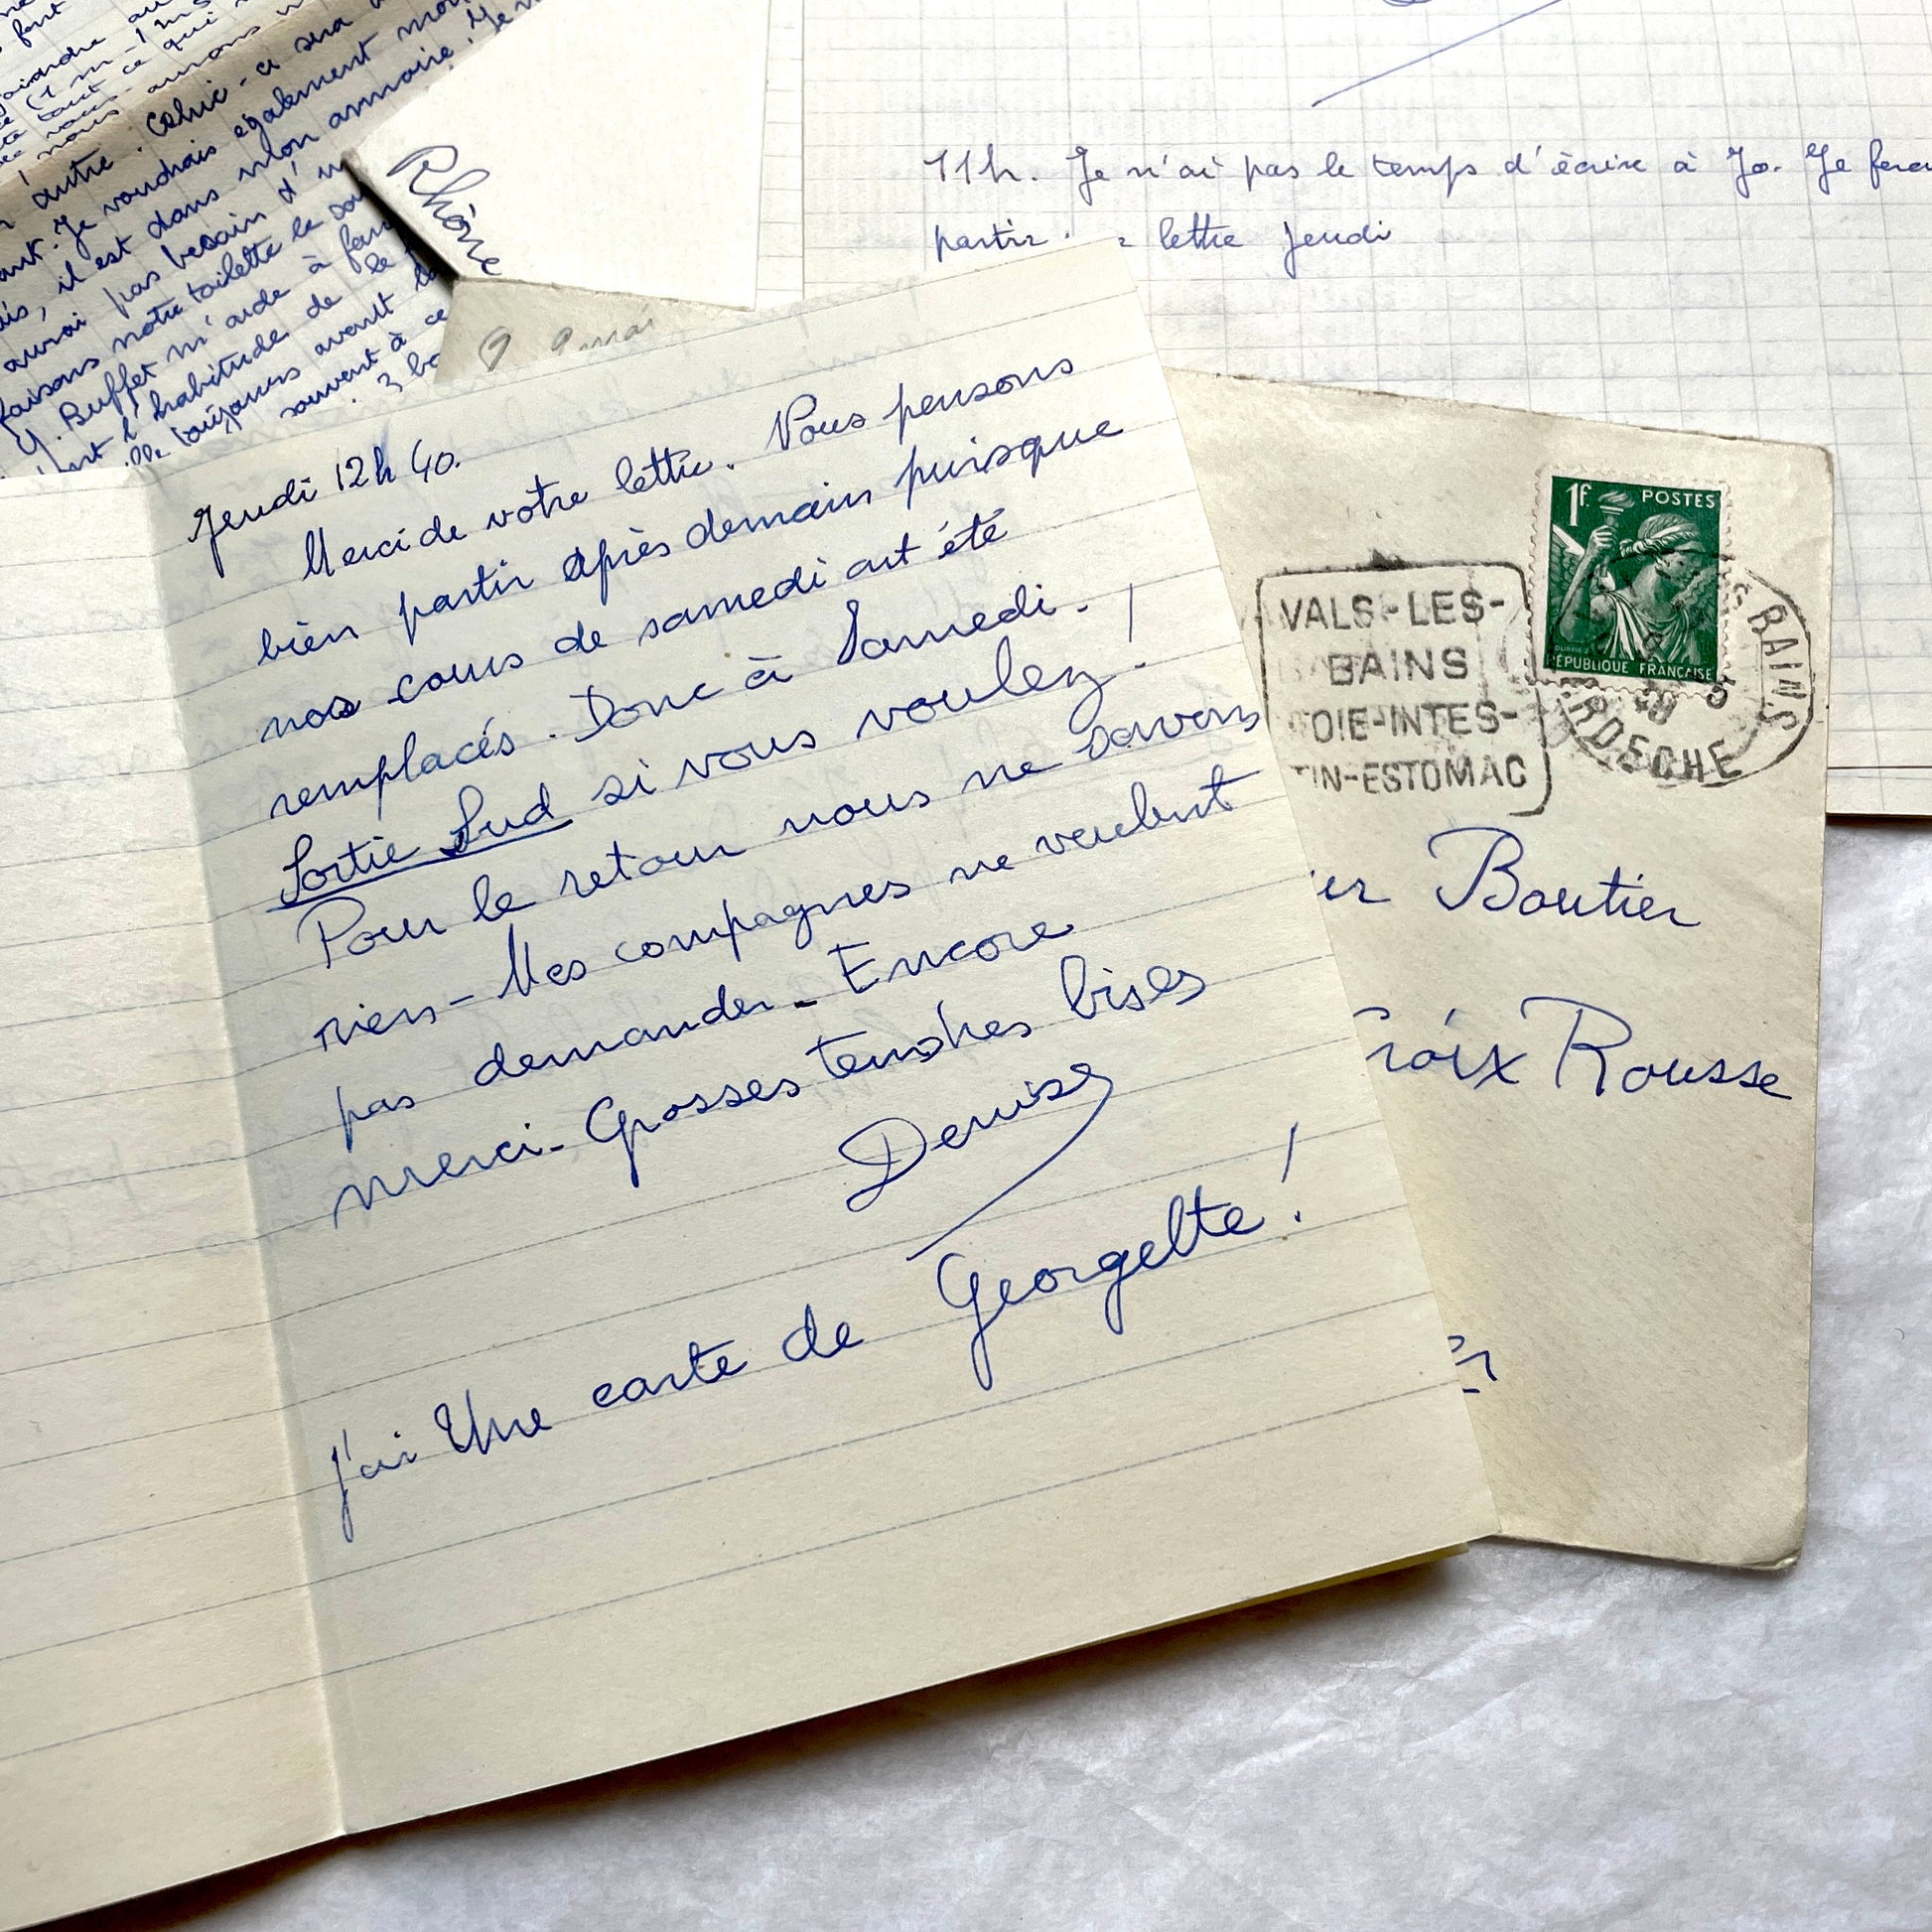 autre. celui-ci sera
Je voudrais également mon
, il est dans mon armoire. Je
aurai pas besoin d'un
faisons notre toilette le
Buffet m'aide à
l'habitude de le
toujours avant
souvent à ce
3
Rhône
9 mai
11h. Je n'ai pas le temps d'écrire à Jo. Je ferai
partir lettre Jeudi
Jeudi 12h 40.
Merci de votre lettre. Nous pensons
bien partir après demain puisque
nos cours de samedi ont été
remplacés. Donc à Samedi.
Sortie Sud si vous voulez!
Pour le retour nous ne savons
rien - Mes compagnes ne veulent
pas demander - Encore
merci - Grosses tendres bises
Denise
J'ai Une carte de Georgette!
1F. POSTES
RÉPUBLIQUE FRANÇAISE
VALS-LES-
BAINS
FOIE-INTES-
TIN-ESTOMAC
BAINS
ARDECHE
Boutier
Croix Rousse